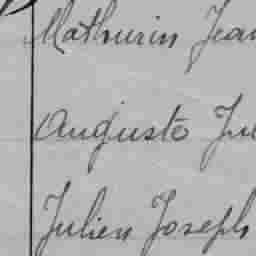 Mathurin Jean
Auguste Ju
Julien Joseph